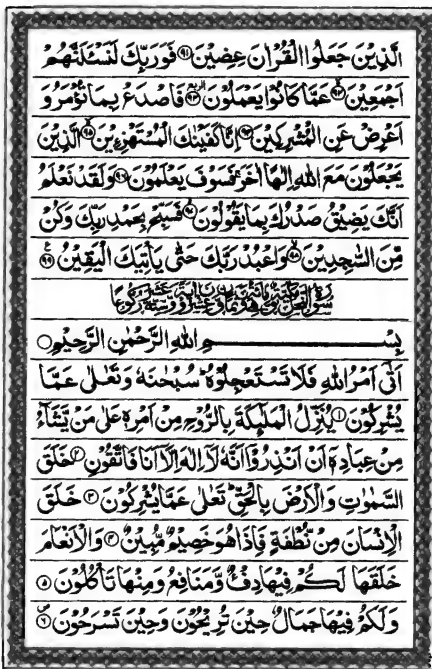 الَّذِيْنَ جَعَلُوا الْقُرْاٰنَ عِضِيْنَ ﴿۹۱﴾ فَوَرَبِّكَ لَنَسْـَٔلَنَّهُمْ
اَجْمَعِيْنَ ﴿۹۲﴾ عَمَّا كَانُوْا يَعْمَلُوْنَ ﴿۹۳﴾ فَاصْدَعْ بِمَا تُؤْمَرُ وَ
اَعْرِضْ عَنِ الْمُشْرِكِيْنَ ﴿۹۴﴾ اِنَّا كَفَيْنٰكَ الْمُسْتَهْزِءِيْنَ ﴿۹۵﴾ الَّذِيْنَ
يَجْعَلُوْنَ مَعَ اللّٰهِ اِلٰهًا اٰخَرَ ۚ فَسَوْفَ يَعْلَمُوْنَ ﴿۹۶﴾ وَلَقَدْ نَعْلَمُ
اَنَّكَ يَضِيْقُ صَدْرُكَ بِمَا يَقُوْلُوْنَ ﴿۹۷﴾ فَسَبِّحْ بِحَمْدِ رَبِّكَ وَكُنْ
مِّنَ السّٰجِدِيْنَ ﴿۹۸﴾ وَاعْبُدْ رَبَّكَ حَتّٰى يَاْتِيَكَ الْيَقِيْنُ ﴿۹۹﴾
بِسْمِ اللّٰهِ الرَّحْمٰنِ الرَّحِيْمِ
اَتٰٓى اَمْرُ اللّٰهِ فَلَا تَسْتَعْجِلُوْهُ ؕ سُبْحٰنَهٗ وَتَعٰلٰى عَمَّا
يُشْرِكُوْنَ ﴿۱﴾ يُنَزِّلُ الْمَلٰٓئِكَةَ بِالرُّوْحِ مِنْ اَمْرِهٖ عَلٰى مَنْ يَّشَآءُ
مِنْ عِبَادِهٖٓ اَنْ اَنْذِرُوْٓا اَنَّهٗ لَآ اِلٰهَ اِلَّآ اَنَا فَاتَّقُوْنِ ﴿۲﴾ خَلَقَ
السَّمٰوٰتِ وَالْاَرْضَ بِالْحَقِّ ؕ تَعٰلٰى عَمَّا يُشْرِكُوْنَ ﴿۳﴾ خَلَقَ
الْاِنْسَانَ مِنْ نُّطْفَةٍ فَاِذَا هُوَ خَصِيْمٌ مُّبِيْنٌ ﴿۴﴾ وَالْاَنْعَامَ
خَلَقَهَا ۚ لَكُمْ فِيْهَا دِفْءٌ وَّمَنَافِعُ وَمِنْهَا تَاْكُلُوْنَ ﴿۵﴾
وَلَكُمْ فِيْهَا جَمَالٌ حِيْنَ تُرِيْحُوْنَ وَحِيْنَ تَسْرَحُوْنَ ﴿۶﴾